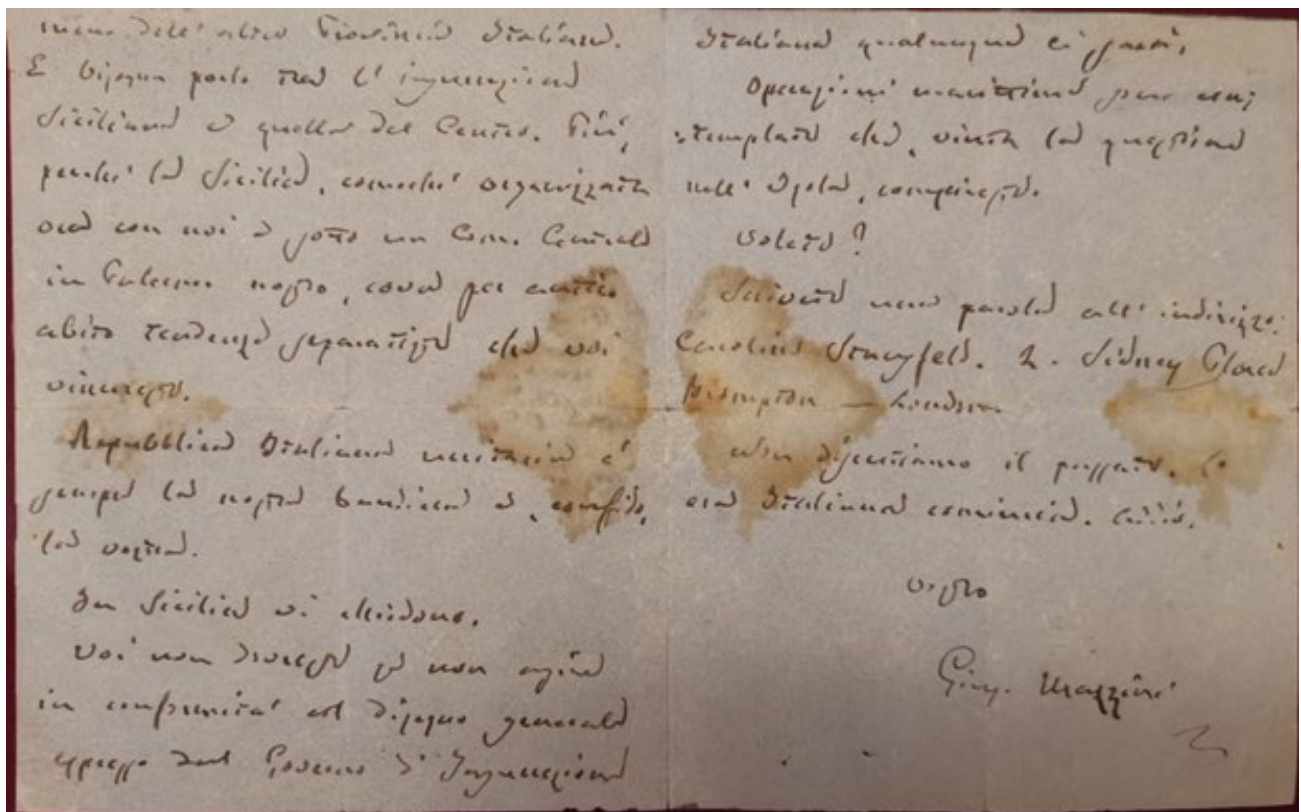 meno dell' altre Provincie Italiane.
E bisogna tra l' insurrezione
Siciliana e quella del Centro. Poi,
perché la Sicilia, comeché organizzata
ora con noi e sotto un Com. Centrale
in Palermo nostro, cova per antico
abito tendenze separatiste che voi
vincereste.
Repubblica Italiana unitaria è
sempre la nostra bandiera e, confido,
la vostra.
In Sicilia vi chiedono.
Voi non dovreste se non agire
in conformità col disegno generale
espresso dal Governo d' Insurrezione
Italiana qualunque ei sarà.
Operazioni marittime sono con:
:template che, vinta la questione
nell' Isola, compireste.
Volete?
Scrivete una parola all' indirizzo:
Caroline Stansfeld. 2. Sidney Place
Brompton — Londra.
Non discutiamo il passato. L'
era Italiana comincia. Addio.
vostro
Gius. Mazzini